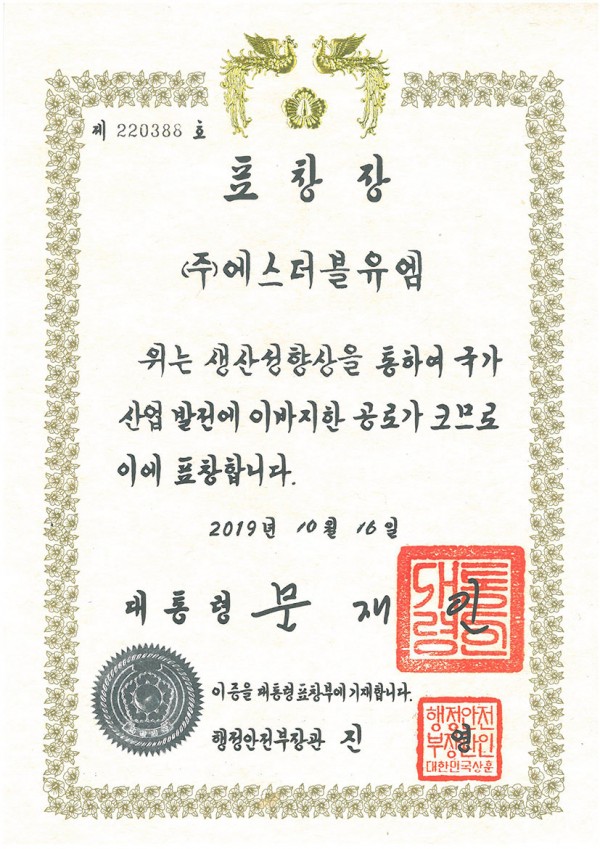 제 220388 호
표창장
(주)에스더블유엠
위는 생산성향상을 통하여 국가
산업 발전에 이바지한 공로가 크므로
이에 표창합니다.
2019년 10월 16일
대통령 문 재 인
대통령의인
이 증을 대통령표창부에 기재합니다.
행정안전부장관 진 영
행정안전
부장관인
대한민국상훈